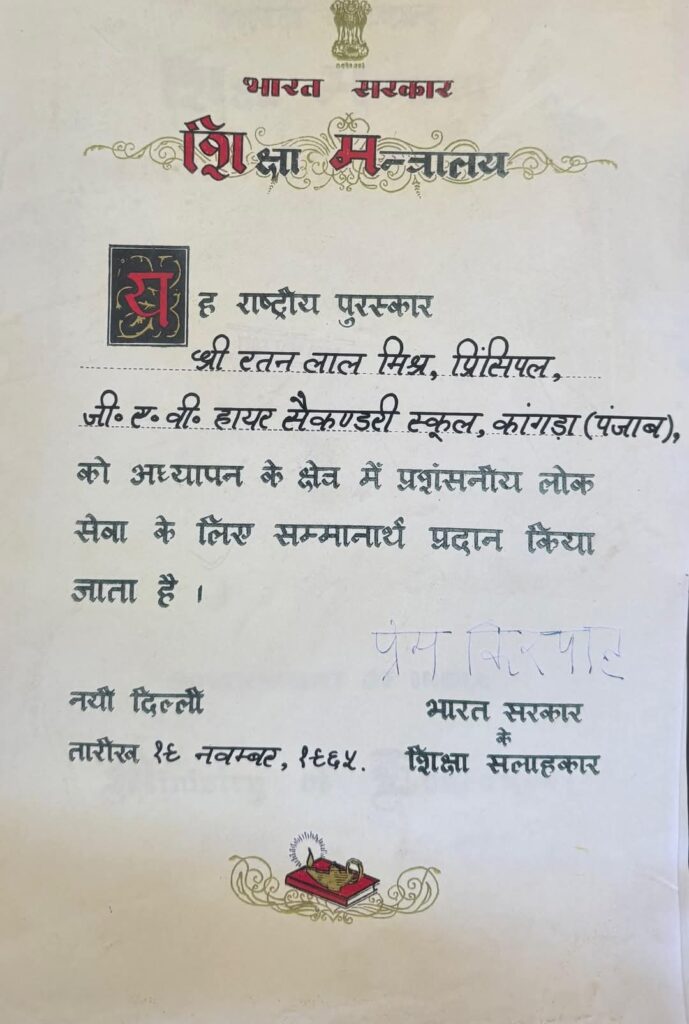 भारत सरकार
शिक्षा मन्त्रालय
यह राष्ट्रीय पुरस्कार
श्री रतन लाल मिश्र, प्रिंसिपल,
जी॰ ए॰ वी॰ हायर सैकण्डरी स्कूल, कांगड़ा (पंजाब),
को अध्यापन के क्षेत्र में प्रशंसनीय लोक
सेवा के लिए सम्मानार्थ प्रदान किया
जाता है ।
प्रेम किरपाल
नयी दिल्ली
तारीख १९ नवम्बर, १९६५.
भारत सरकार
के
शिक्षा सलाहकार